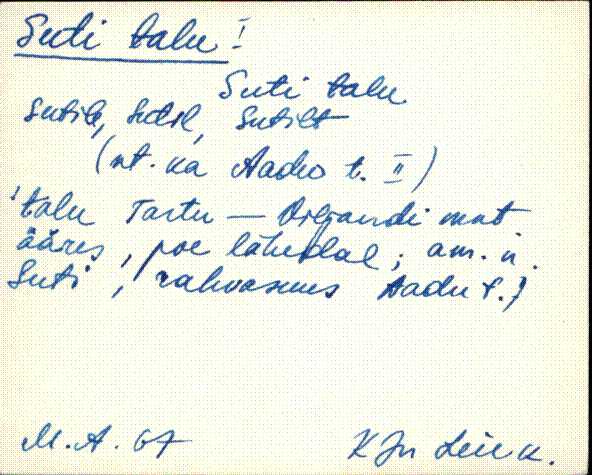 Suti talu I
Suti talu
Sutile, Sutil, Sutilt
(vt. ka Aadu t. II)
'talu Tartu — Viljandi mnt
ääres, poe lähedal; am. n.
Suti, rahvasuus Aadu t.'
M. A. 67
KJn